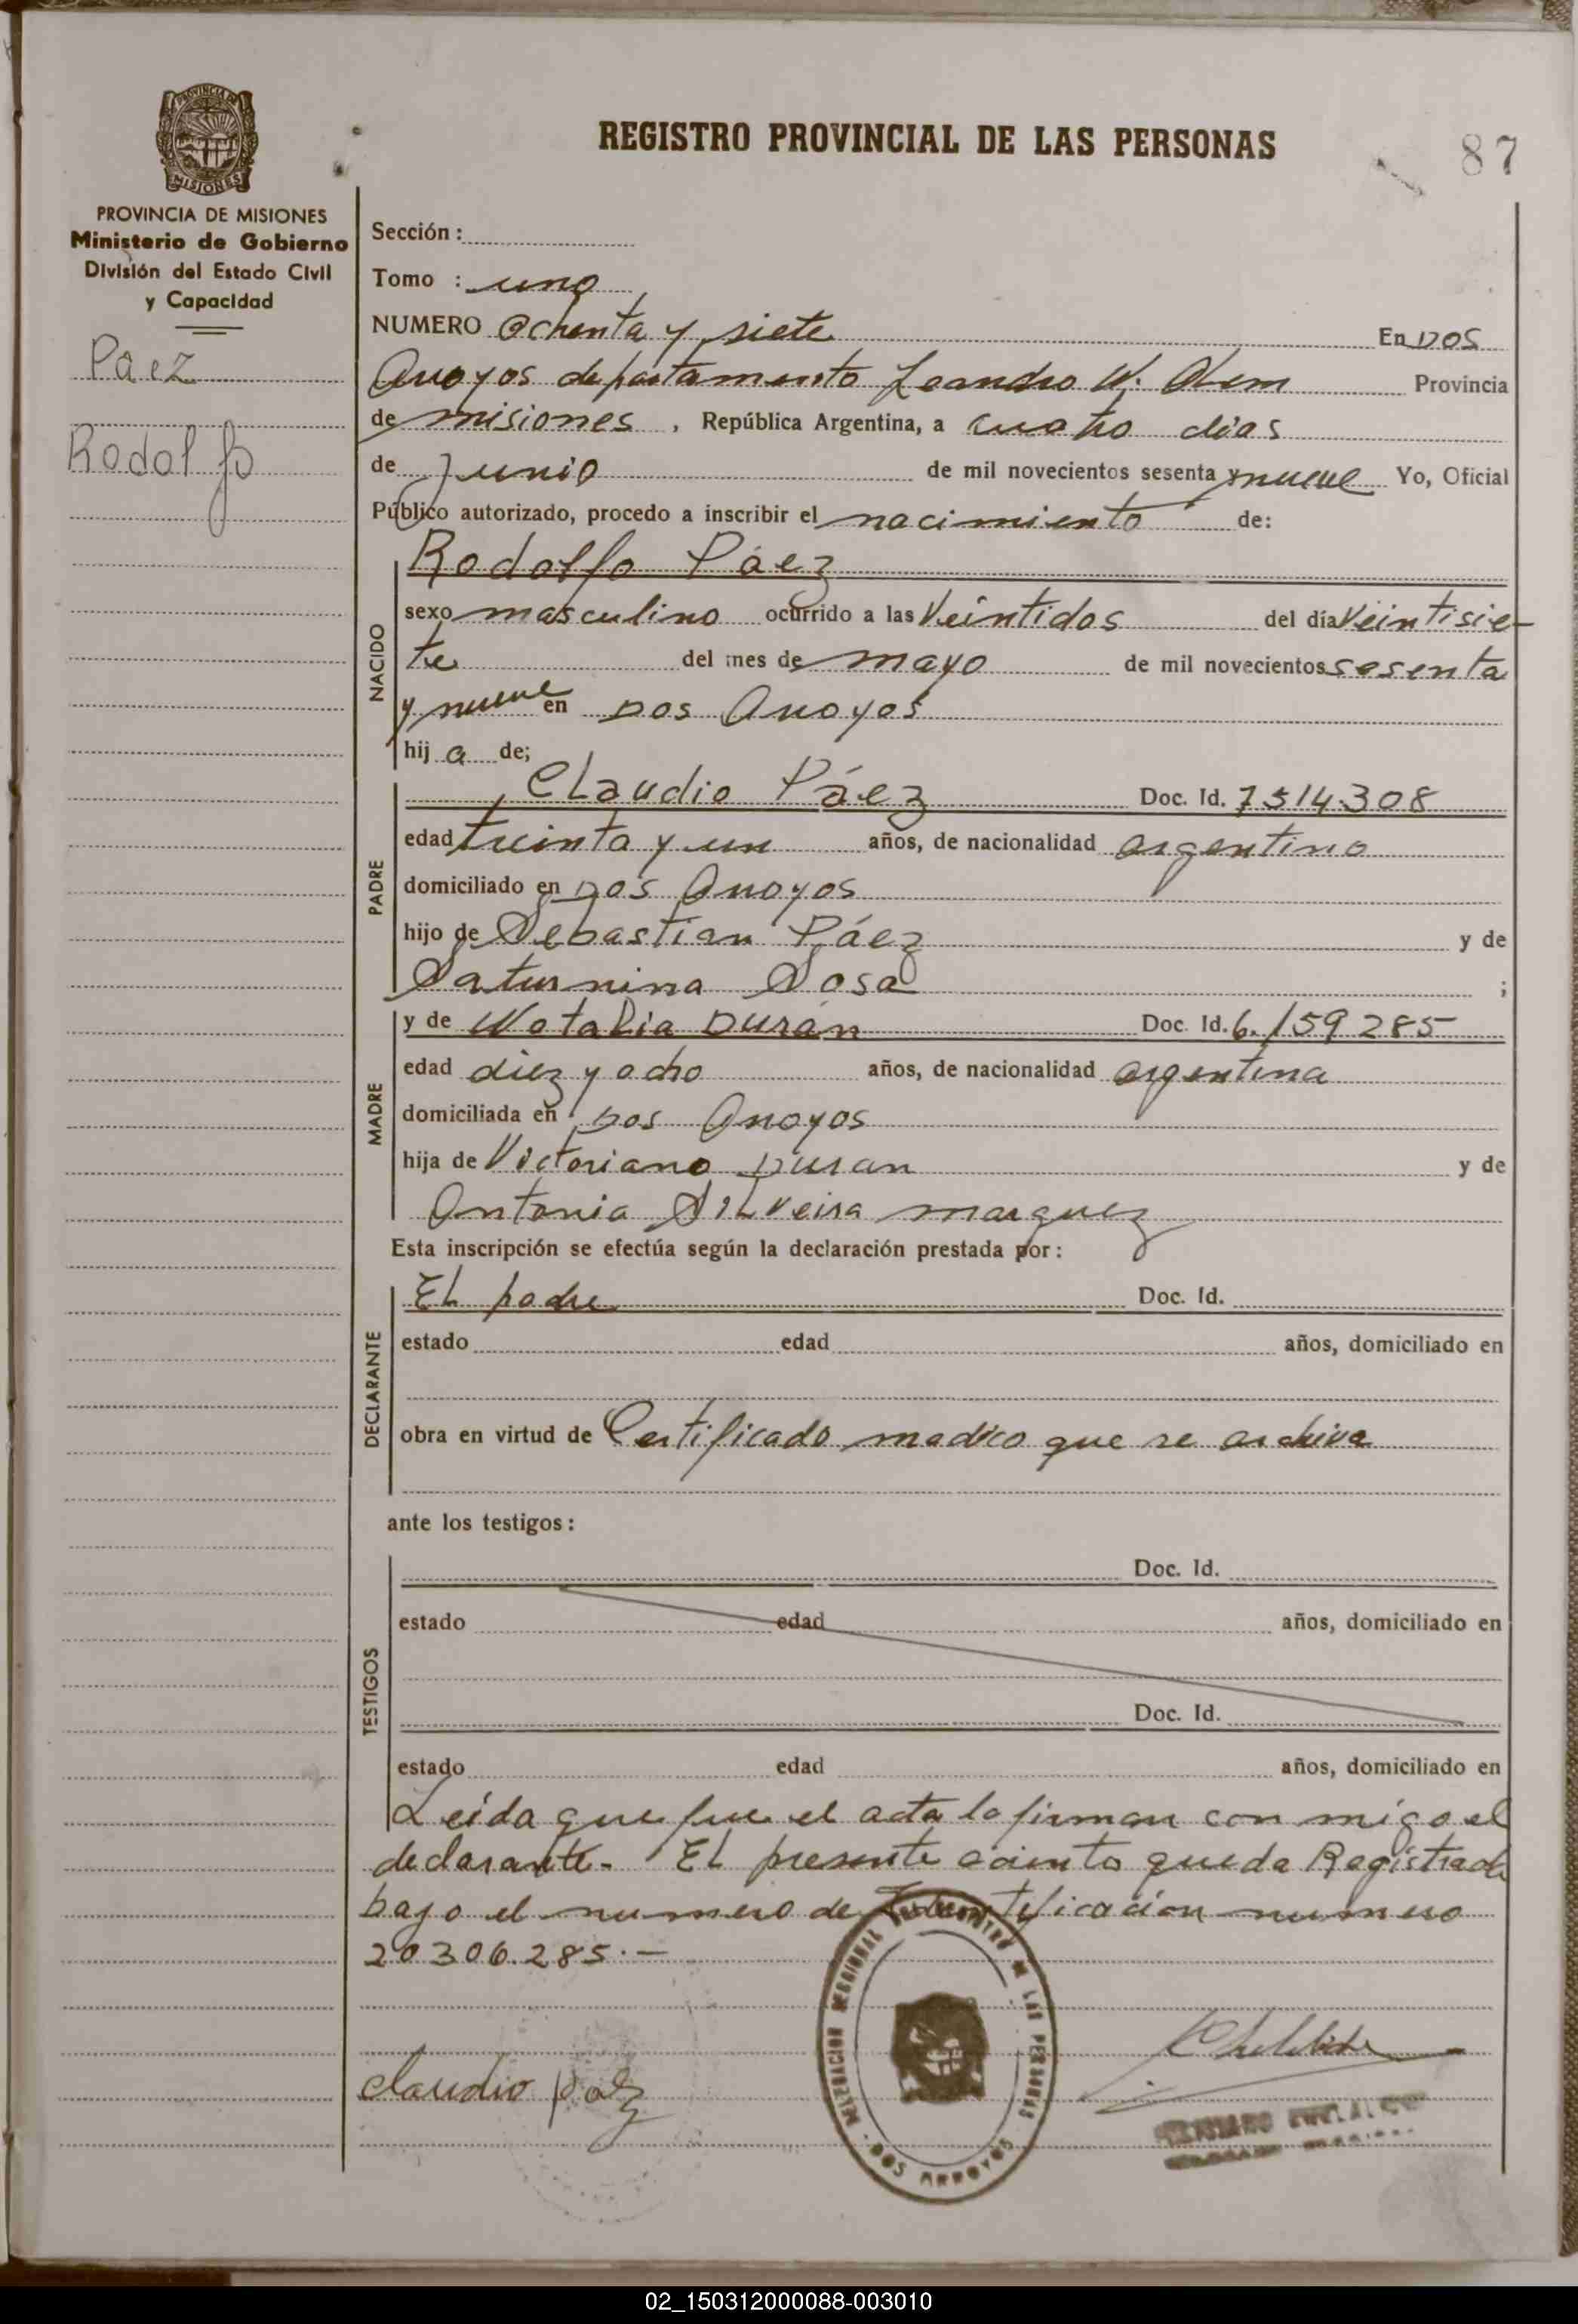 REGISTRO PROVINCIAL DE LAS PERSONAS
87
PROVINCIA DE MISIONES
Ministerio de Gobierno
División del Estado Civil
y Capacidad
Páez
Rodolfo
Sección :
Tomo : uno
NUMERO Ochenta y siete En DOS
Arroyos departamento Leandro N. Alem Provincia
de misiones , República Argentina, a cuatro dias
de Junio de mil novecientos sesenta y nueve Yo, Oficial
Público autorizado, procedo a inscribir el nacimiento de:
NACIDO
Rodolfo Páez
sexo masculino ocurrido a las Veintidos del día Veintisie-
te del mes de mayo de mil novecientos sesenta
y nueve en Dos Arroyos
hij a de;
PADRE
Claudio Páez Doc. Id. 7514308
edad treinta y un años, de nacionalidad argentino
domiciliado en Dos Arroyos
hijo de Sebastian Páez y de
Saturnina Sosa ;
MADRE
y de Natalia Durán Doc. Id. 6.159285
edad diez y ocho años, de nacionalidad argentina
domiciliada en Dos Arroyos
hija de Victoriano Duran y de
Antonia Silveira marquez
Esta inscripción se efectúa según la declaración prestada por :
DECLARANTE
El padre Doc. Id.
estado edad años, domiciliado en
obra en virtud de Certificado medico que se archiva
ante los testigos :
TESTIGOS
Doc. Id.
estado edad años, domiciliado en
Doc. Id.
estado edad años, domiciliado en
Leída que fue el acta la firman con migo el
declarante.- El presente asiento queda Registrado
bajo el numero de Identificación numero
20306.285.-
claudio paez
DELEGACION REGIONAL DEL REGISTRO DE LAS PERSONAS
- DOS ARROYOS -
02_150312000088-003010